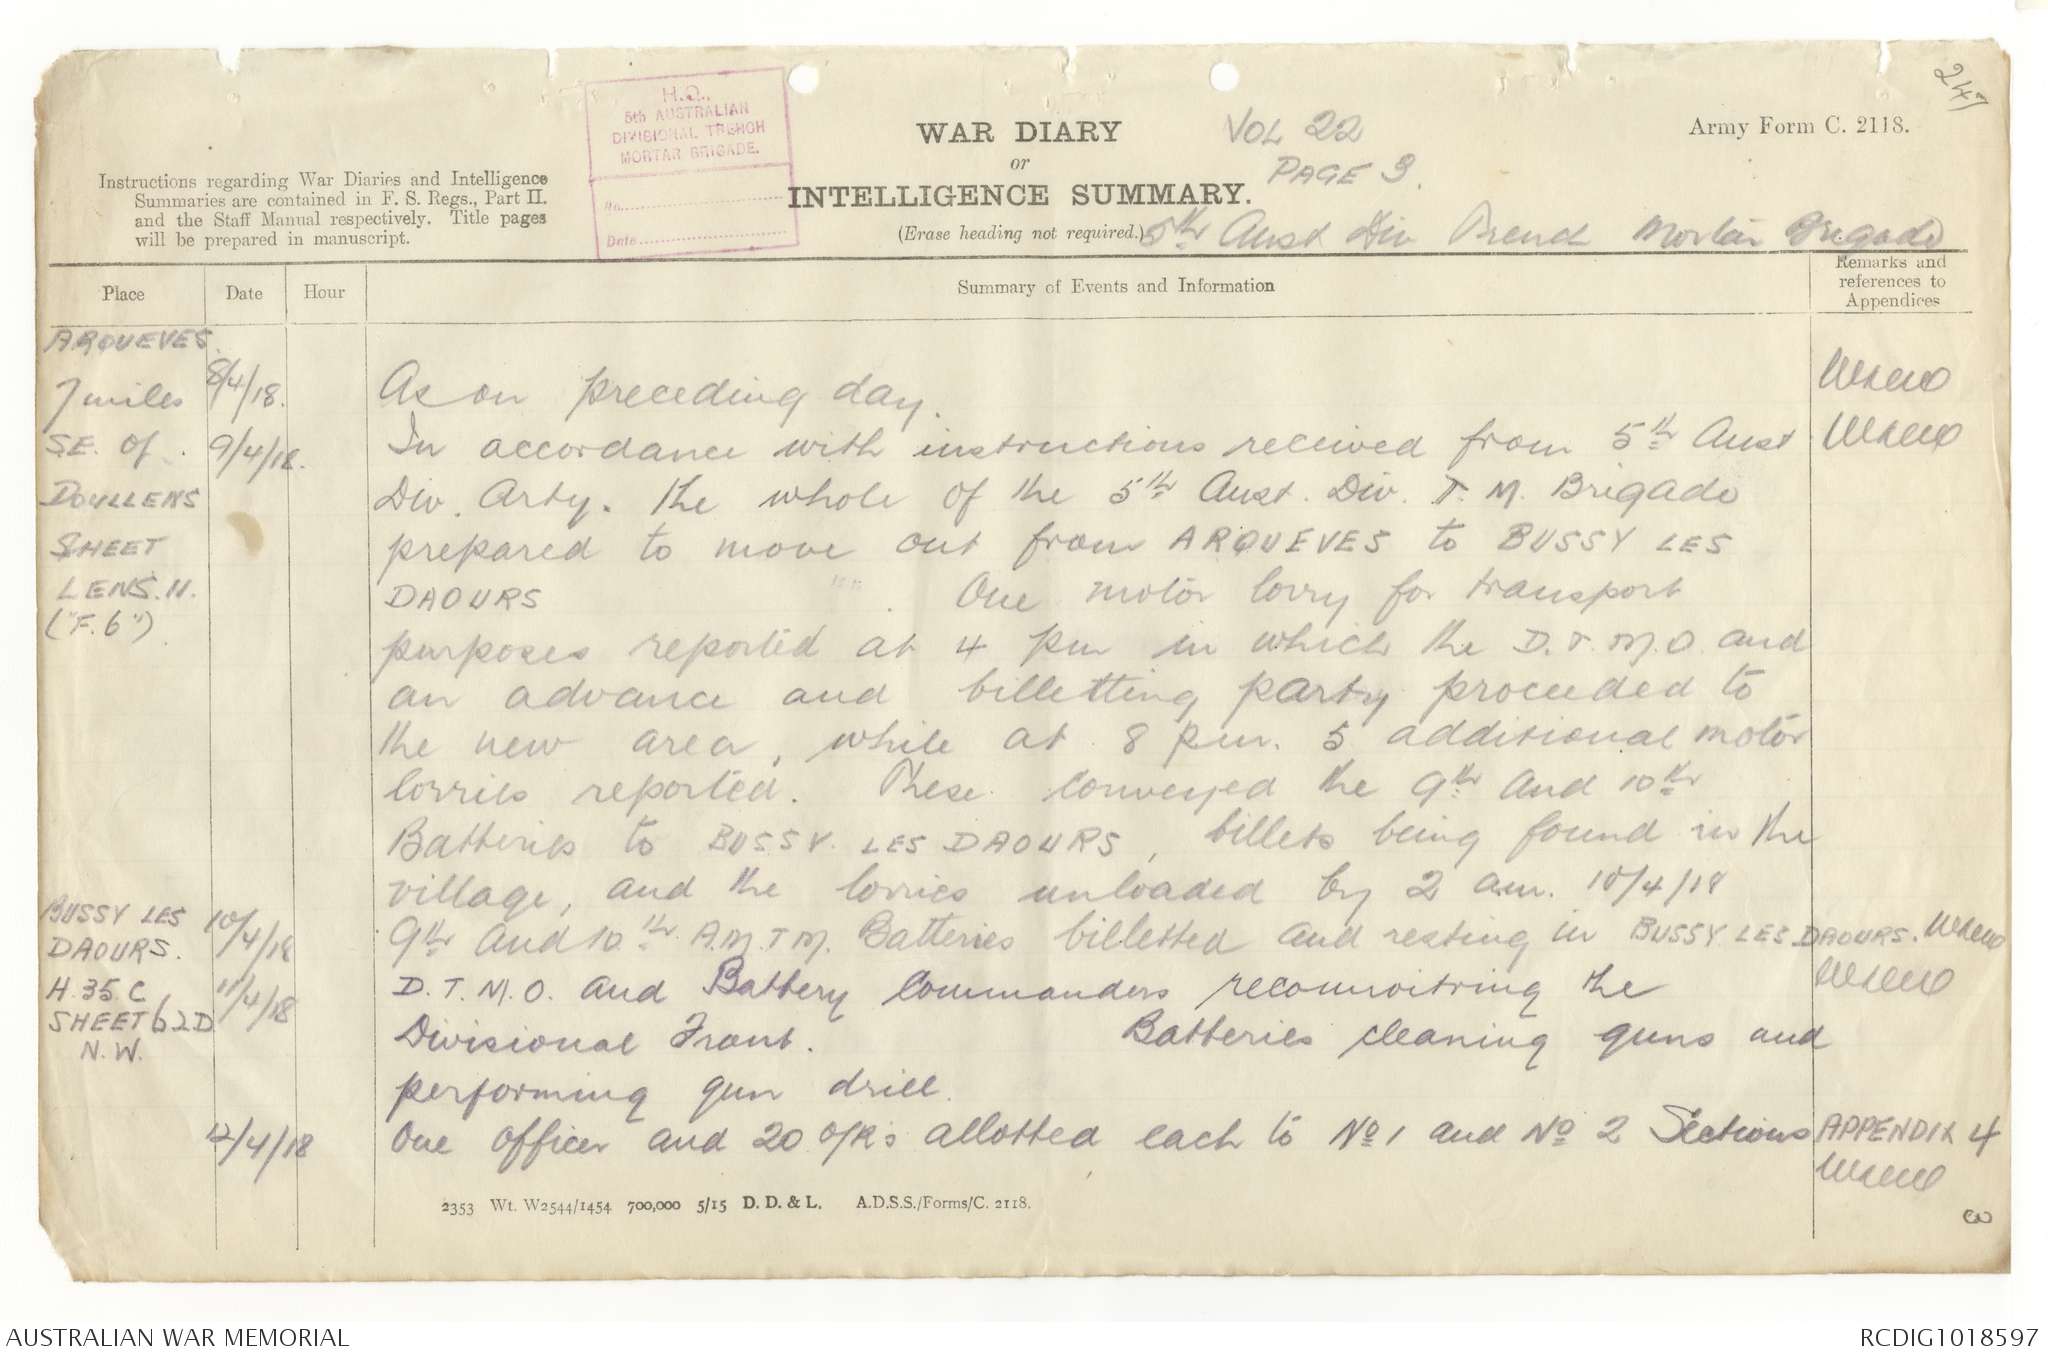 247
H.Q.,
5th AUSTRALIAN
DIVISIONAL TRENCH
MORTAR BRIGADE.
No.
Date
WAR DIARY
or
INTELLIGENCE SUMMARY.
(Erase heading not required.)
VOL 22
PAGE 3.
Army Form C. 2118.
Instructions regarding War Diaries and Intelligence
Summaries are contained in F. S. Regs., Part II.
and the Staff Manual respectively. Title pages
will be prepared in manuscript.
5th Aust Div Trench Mortar Brigade
Place Date Hour Summary of Events and Information Remarks and
references to
Appendices
ARQUEVES.
7 miles 8/4/18. As on preceding day.
SE. Of. 9/4/18. In accordance with instructions received from 5th Aust
DOULLENS Div. Arty. the whole of the 5th Aust. Div. T. M. Brigade
SHEET prepared to move out from ARQUEVES to BUSSY LES
LENS. 11. DAOURS. One motor lorry for transport
("F. 6") purposes reported at 4 pm in which the D. T. M. O. and
an advance and billetting party proceeded to
the new area, while at 8 pm. 5 additional motor
lorries reported. These conveyed the 9th and 10th
Batteries to BUSSY. LES DAOURS, billets being found in the
village, and the lorries unloaded by 2 am. 10/4/18
BUSSY LES 10/4/18 9th and 10th A.M.T.M. Batteries billetted and resting in BUSSY LES DAOURS.
DAOURS.
H. 35. C 11/4/18 D. T. M. O. and Battery Commanders reconnoitring the
SHEET 62D Divisional Front. Batteries cleaning guns and
N. W. performing gun drill.
12/4/18 One officer and 20 O/R's allotted each to No 1 and No 2 Sections APPENDIX 4
2353 Wt. W2544/1454 700,000 5/15 D. D. & L. A.D.S.S./Forms/C. 2118.
3
AUSTRALIAN WAR MEMORIAL RCDIG1018597